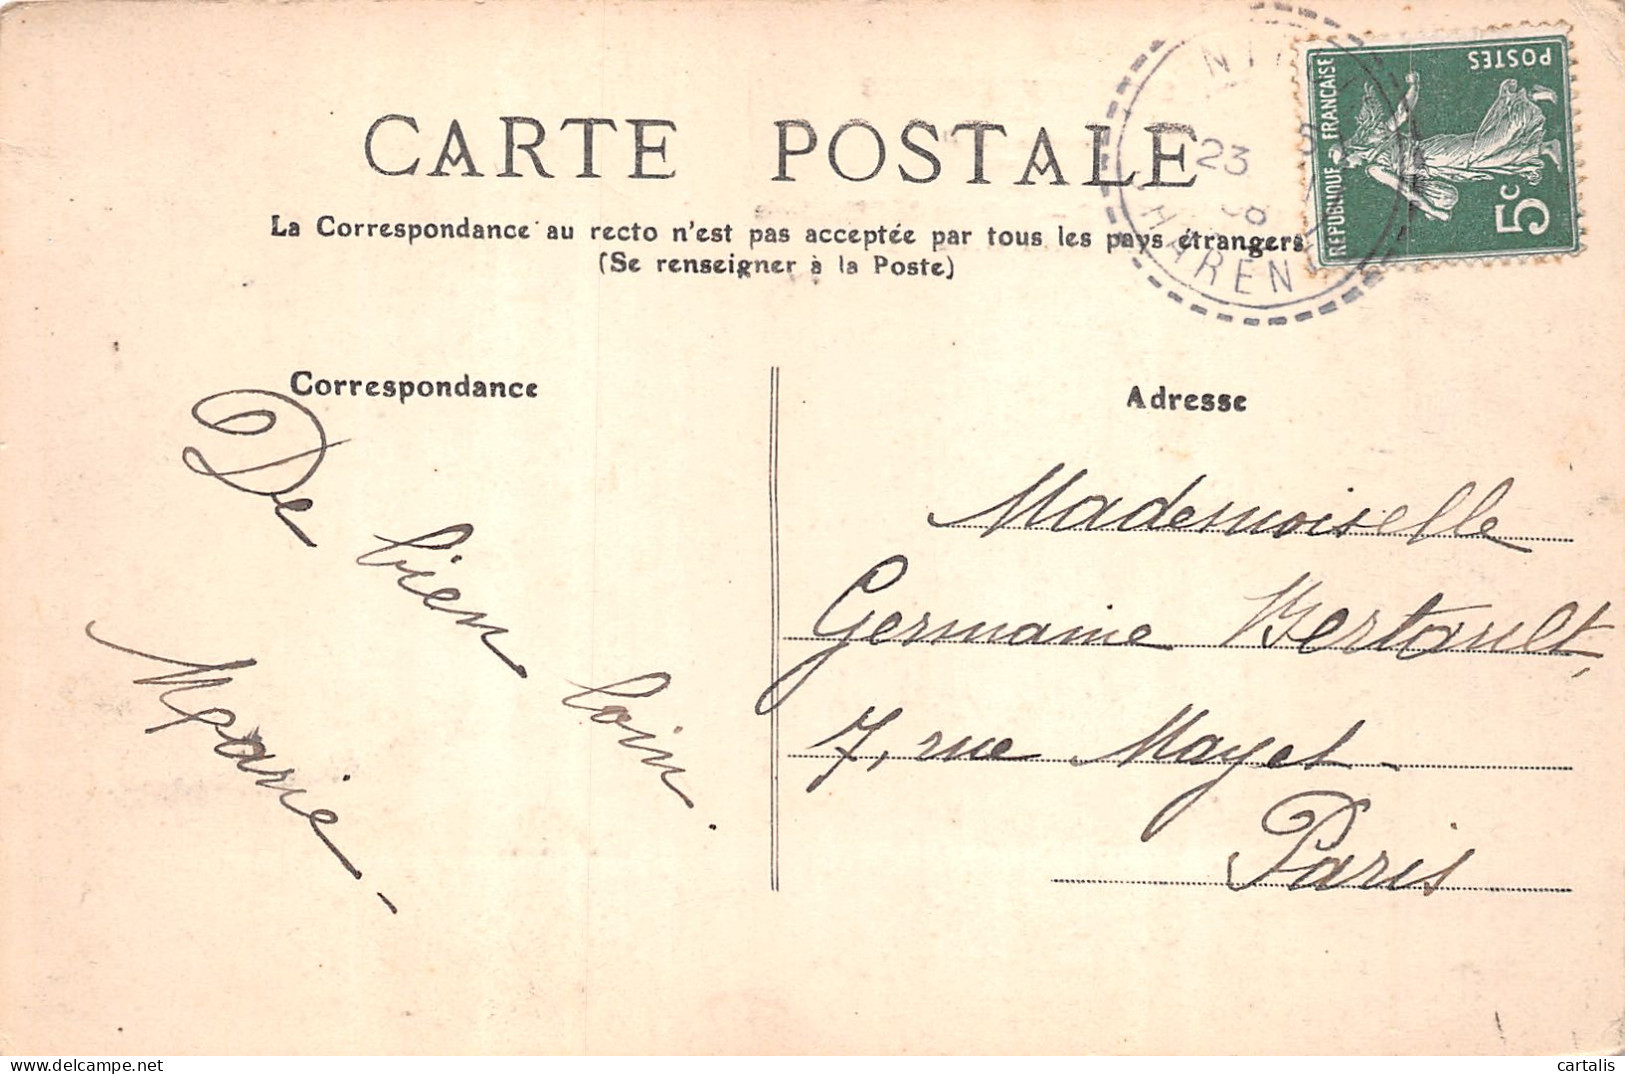 CARTE POSTALE
La Correspondance au recto n'est pas acceptée par tous les pays étrangers
(Se renseigner à la Poste)
23
RÉPUBLIQUE FRANÇAISE
POSTES
5c
Correspondance
De bien loin.
Marie -
Adresse
Mademoiselle
Germaine Bertault,
7, rue Mayet -
Paris
cartalis